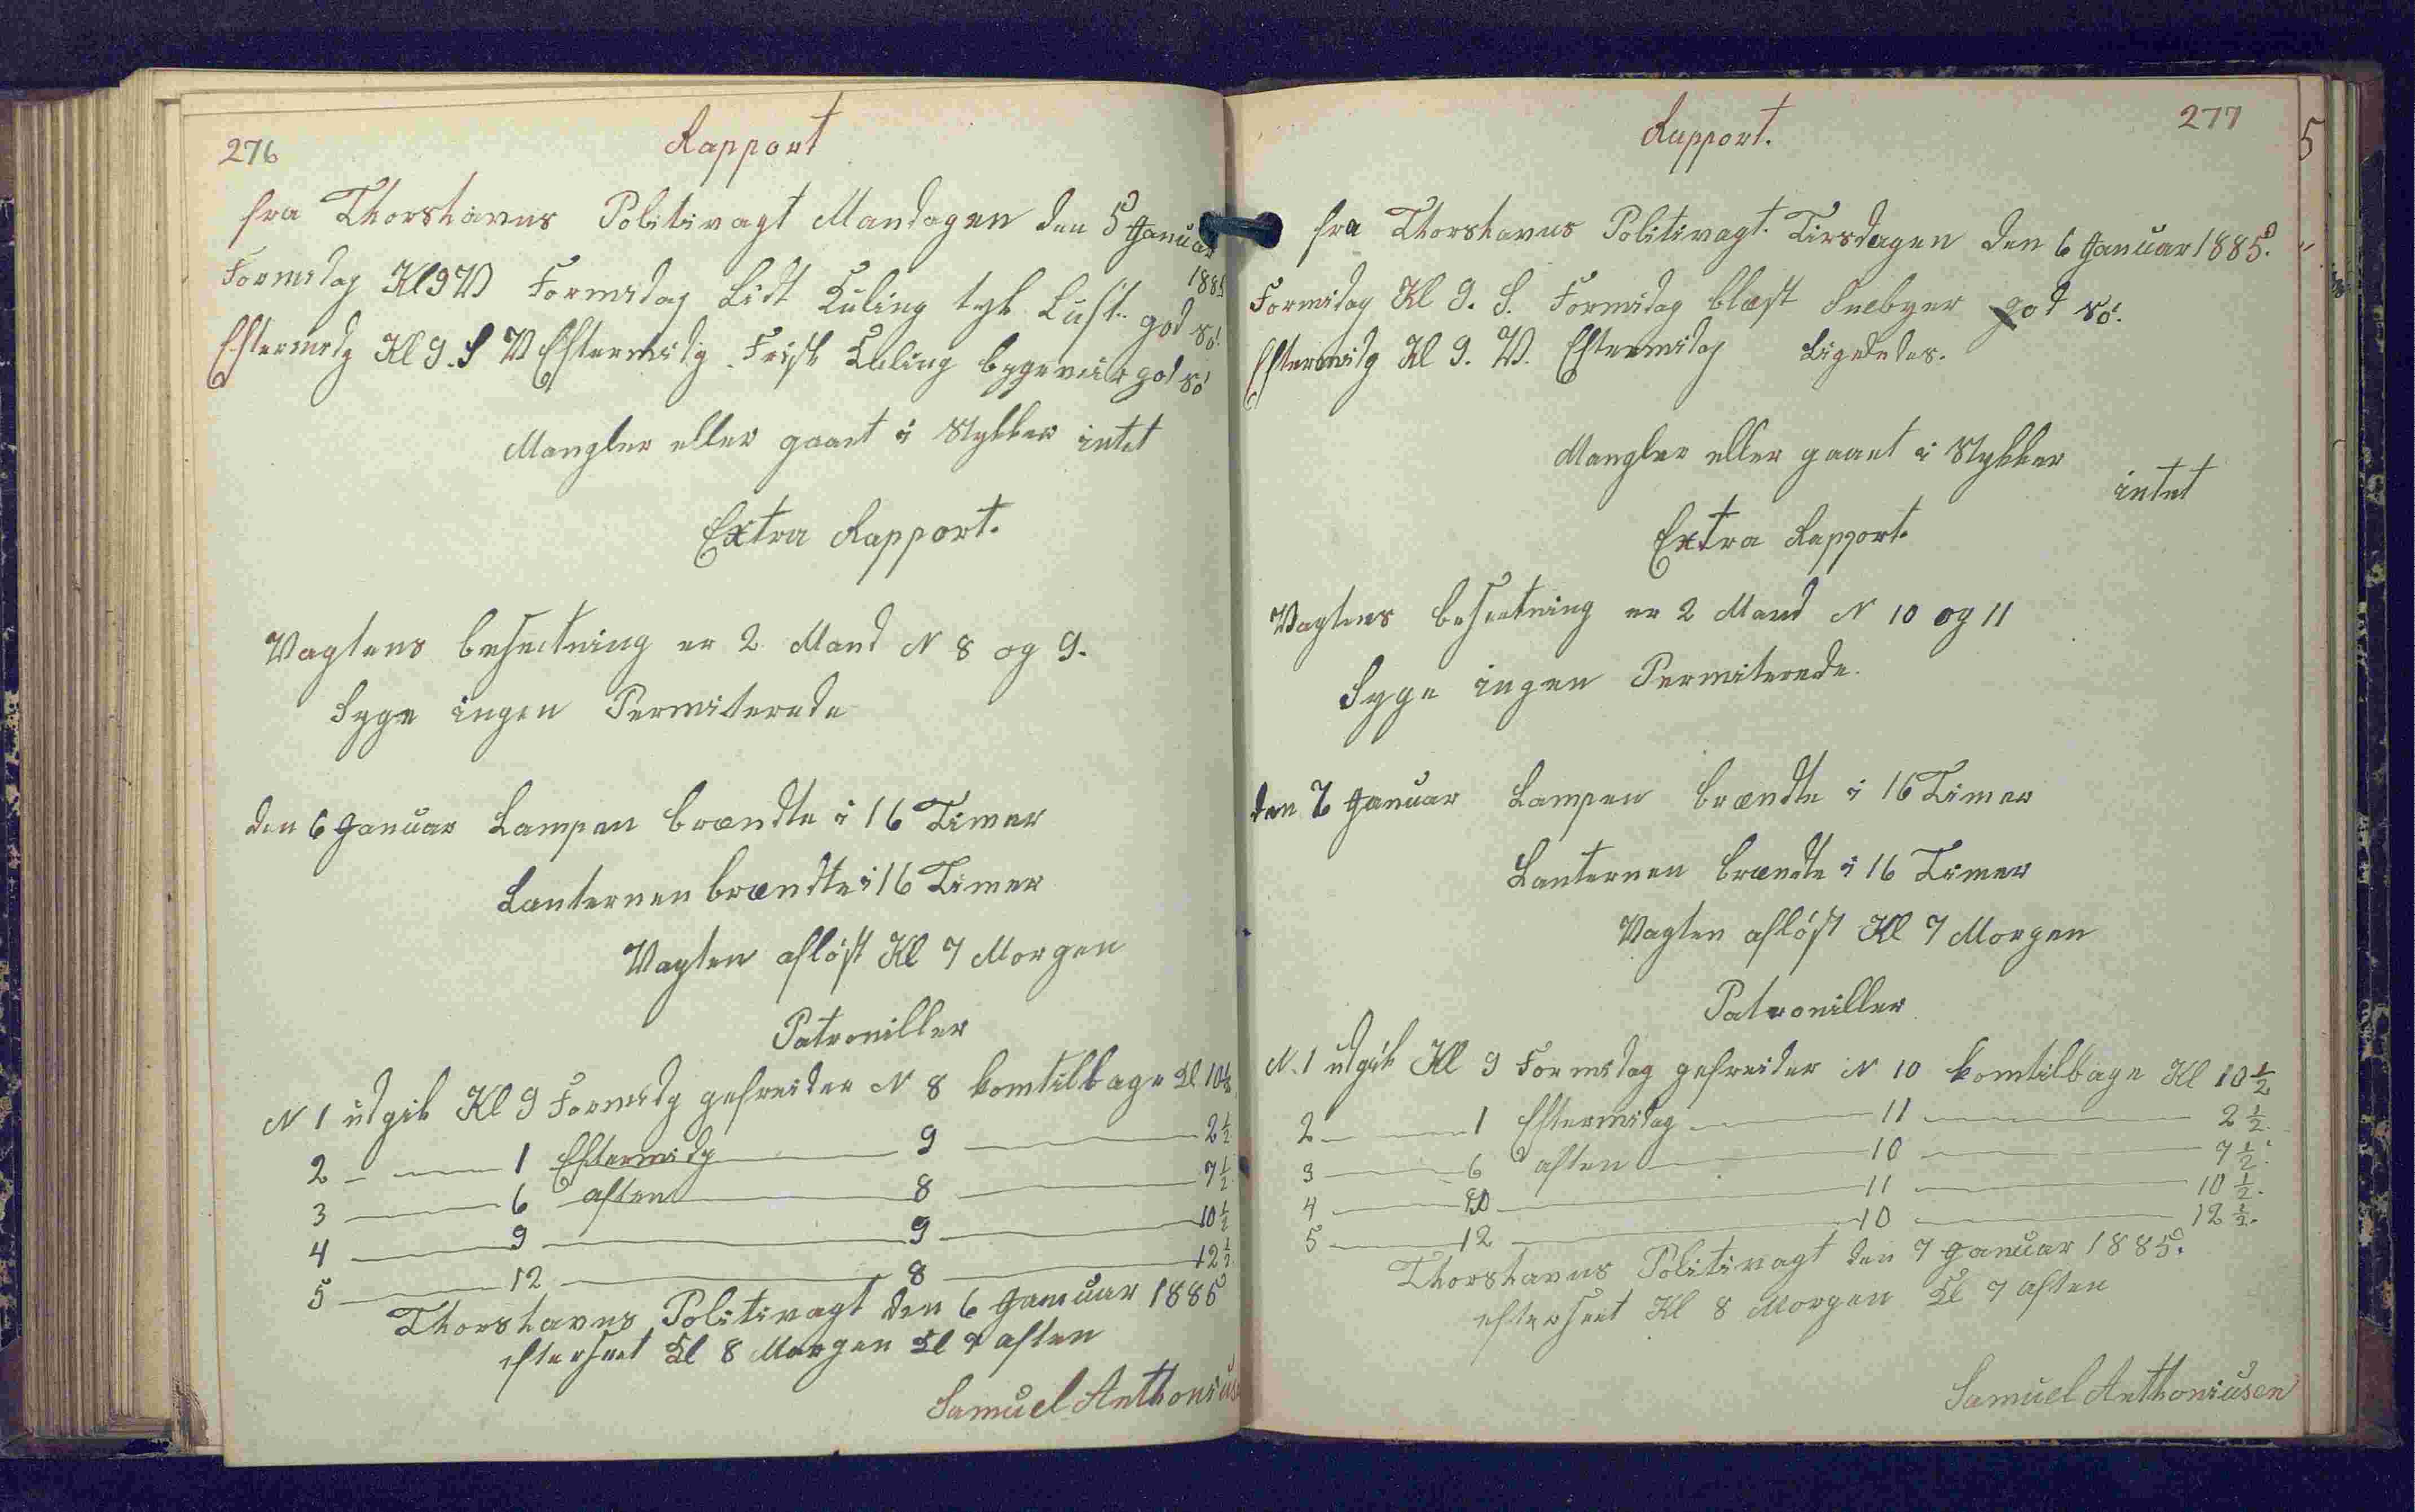 276
Rapport
fra Thorshavns Politivagt Mandagen den 5 Januar
1885
Formidag Kl 9 V Formidag Lidt Kuling tyk Luft. god Sö.
Eftermidg Kl 9. S V Eftermidg. Frisk Kuling bygeveir god Sö
Mangler eller gaaet i Stykker intet
Extra Rapport.
Vagtens besætning er 2 Mand N 8 og 9.
Syge ingen Permiterede
den 6 Januar Lampen brændte i 16 Timer
Lanternen brændte i 16 Timer
Vagten aflöst Kl 7 Morgen
Patroniller
N 1 udgik Kl 9 Formidg gefreider N 8 komtilbage Kl 10½
2 — — 1 Eftermidg — 9 — 2½
3 — 6 aften — 8 — 7½
4 — 9 — 9 — 10½
5 — 12 — 8 — 12½
Thorshavns Politivagt den 6 Januar 1885
efterseet Kl 8 Morgen Kl 7 aften
Samuel Anthonius
277
Rapport.
fra Thorshavns Politivagt. Tirsdagen den 6 Januar 1885.
Formidag Kl 9. S. Formidag blæst Snebyer god Sö.
Eftermidg Kl 9. V. Eftermidag Ligeledes.
Mangler eller gaaet i Stykker
intet
Extra Rapport.
Vagtens besætning er 2 Mand N 10 og 11
Syge ingen Permiterede.
den 7 Januar Lampen brændte i 16 Timer
Lanternen brændte i 16 Timer
Vagten aflöst Kl 7 Morgen
Patroniller
N. 1 udgik Kl 9 Formidag gefreider N 10 komtilbage Kl 10½
2 — — 1 Eftermidag — 11 — 2½.
3 — 6 aften — 10 — 7½.
4 — — 11 — 10½.
5 — 12 — 10 — 12½.
Thorshavns Politivagt den 7 Januar 1885.
efterseet Kl 8 Morgen Kl 7 aften
Samuel Anthoniusen
5